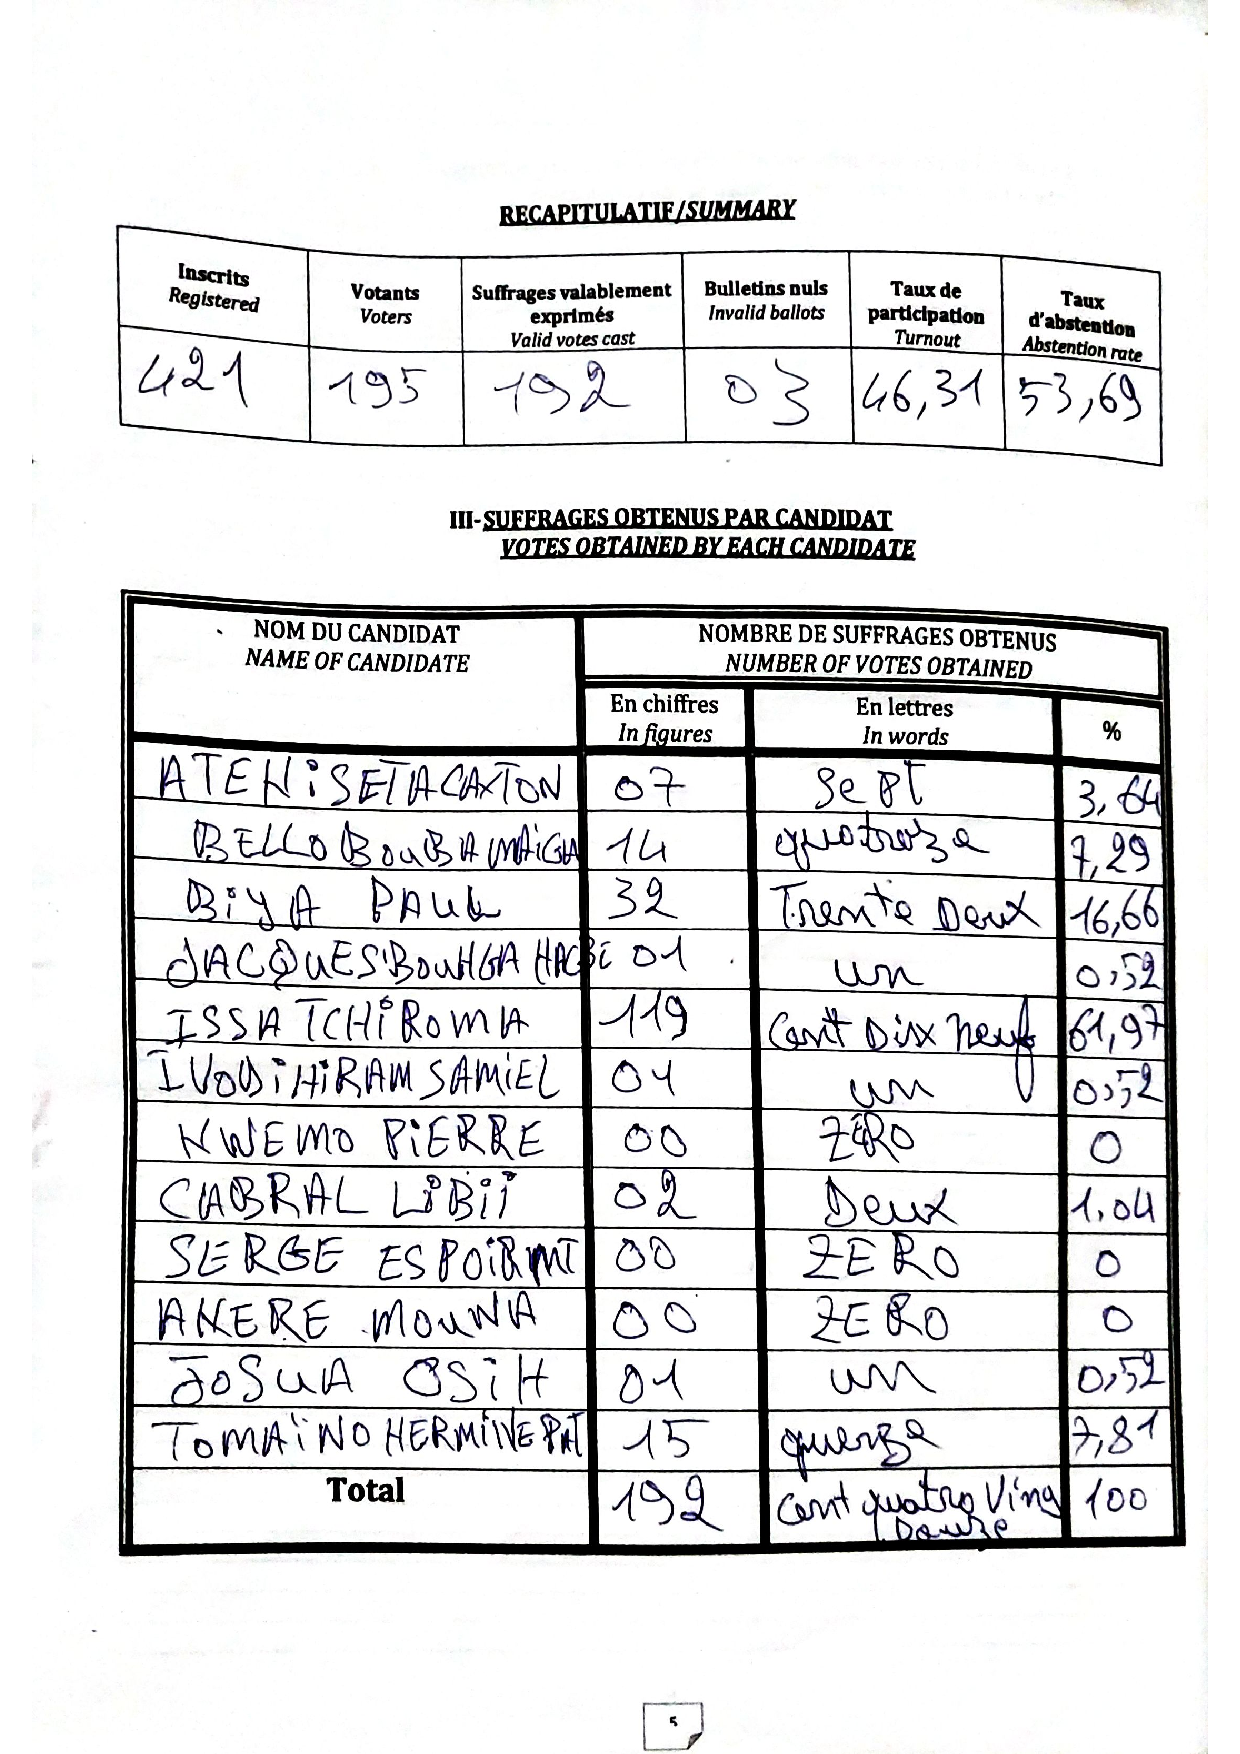 RECAPITULATIF/SUMMARY
Inscrits Registered | Votants Voters | Suffrages valablement exprimés Valid votes cast | Bulletins nuls Invalid ballots | Taux de participation Turnout | Taux d'abstention Abstention rate
421 | 195 | 192 | 03 | 46,31 | 53,69
III-SUFFRAGES OBTENUS PAR CANDIDAT
VOTES OBTAINED BY EACH CANDIDATE
NOM DU CANDIDAT NAME OF CANDIDATE | NOMBRE DE SUFFRAGES OBTENUS NUMBER OF VOTES OBTAINED
En chiffres In figures | En lettres In words | %
ATEKI SETA CAXTON | 07 | Sept | 3,64
BELLO BOUBA MAIGA | 14 | quatorze | 7,29
BIYA PAUL | 32 | Trente Deux | 16,66
JACQUES BOUHGA HAGBE | 01 | un | 0,52
ISSA TCHIROMA | 119 | Cent Dix Neuf | 61,97
IVODI HIRAM SAMIEL | 01 | un | 0,52
KWEMO PIERRE | 00 | ZERO | 0
CABRAL LIBII | 02 | Deux | 1.04
SERGE ESPOIR MT | 00 | ZERO | 0
AKERE MOUNA | 00 | ZERO | 0
JOSUA OSIH | 01 | un | 0,52
TOMAÏNO HERMINE PAT | 15 | quenze | 7,81
Total | 192 | Cent quatre Ving Douze | 100
5